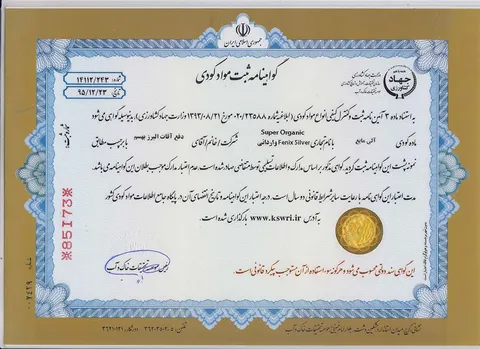 جمهوری اسلامی ایران
گواهینامه ثبت مواد کودی
شماره: ۱۴۱۱۲/۲۴۳
تاریخ: ۹۵/۱۲/۲۳
وزارت جهاد کشاورزی
جهاد
به استناد ماده ۳ آیین نامه ثبت و کنترل کیفی انواع مواد کودی (ابلاغیه شماره ۰۲۰/۲۳۵۸۸ مورخ ۱۳۹۳/۰۸/۲۱ وزارت جهاد کشاورزی) بدینوسیله گواهی می شود
ماده کودی آلی مایع با نام تجاری Super Organic Fenix Silver وارداتی شرکت / خانم / آقای دفع آفات البرز بهسم با ترکیب مطابق
نمونه پشت این گواهی ثبت گردید. گواهی مذکور بر اساس مدارک و اطلاعات تسلیمی توسط متقاضی صادر شده است. عدم اعتبار مدارک موجب بطلان این گواهینامه می باشد.
مدت اعتبار این گواهی نامه با رعایت سایر شرایط قانونی دو سال است. درجه اعتبار این گواهینامه و تاریخ انقضای آن در پایگاه جامع اطلاعات مواد کودی کشور
به آدرس www.kswri.ir بارگذاری شده است.
رئیس موسسه تحقیقات خاک و آب
این گواهی سند دولتی محسوب می شود و هرگونه سوء استفاده از آن مستوجب پیگرد قانونی است.
※85I73※
شماره ۰۰۲۴۲۹